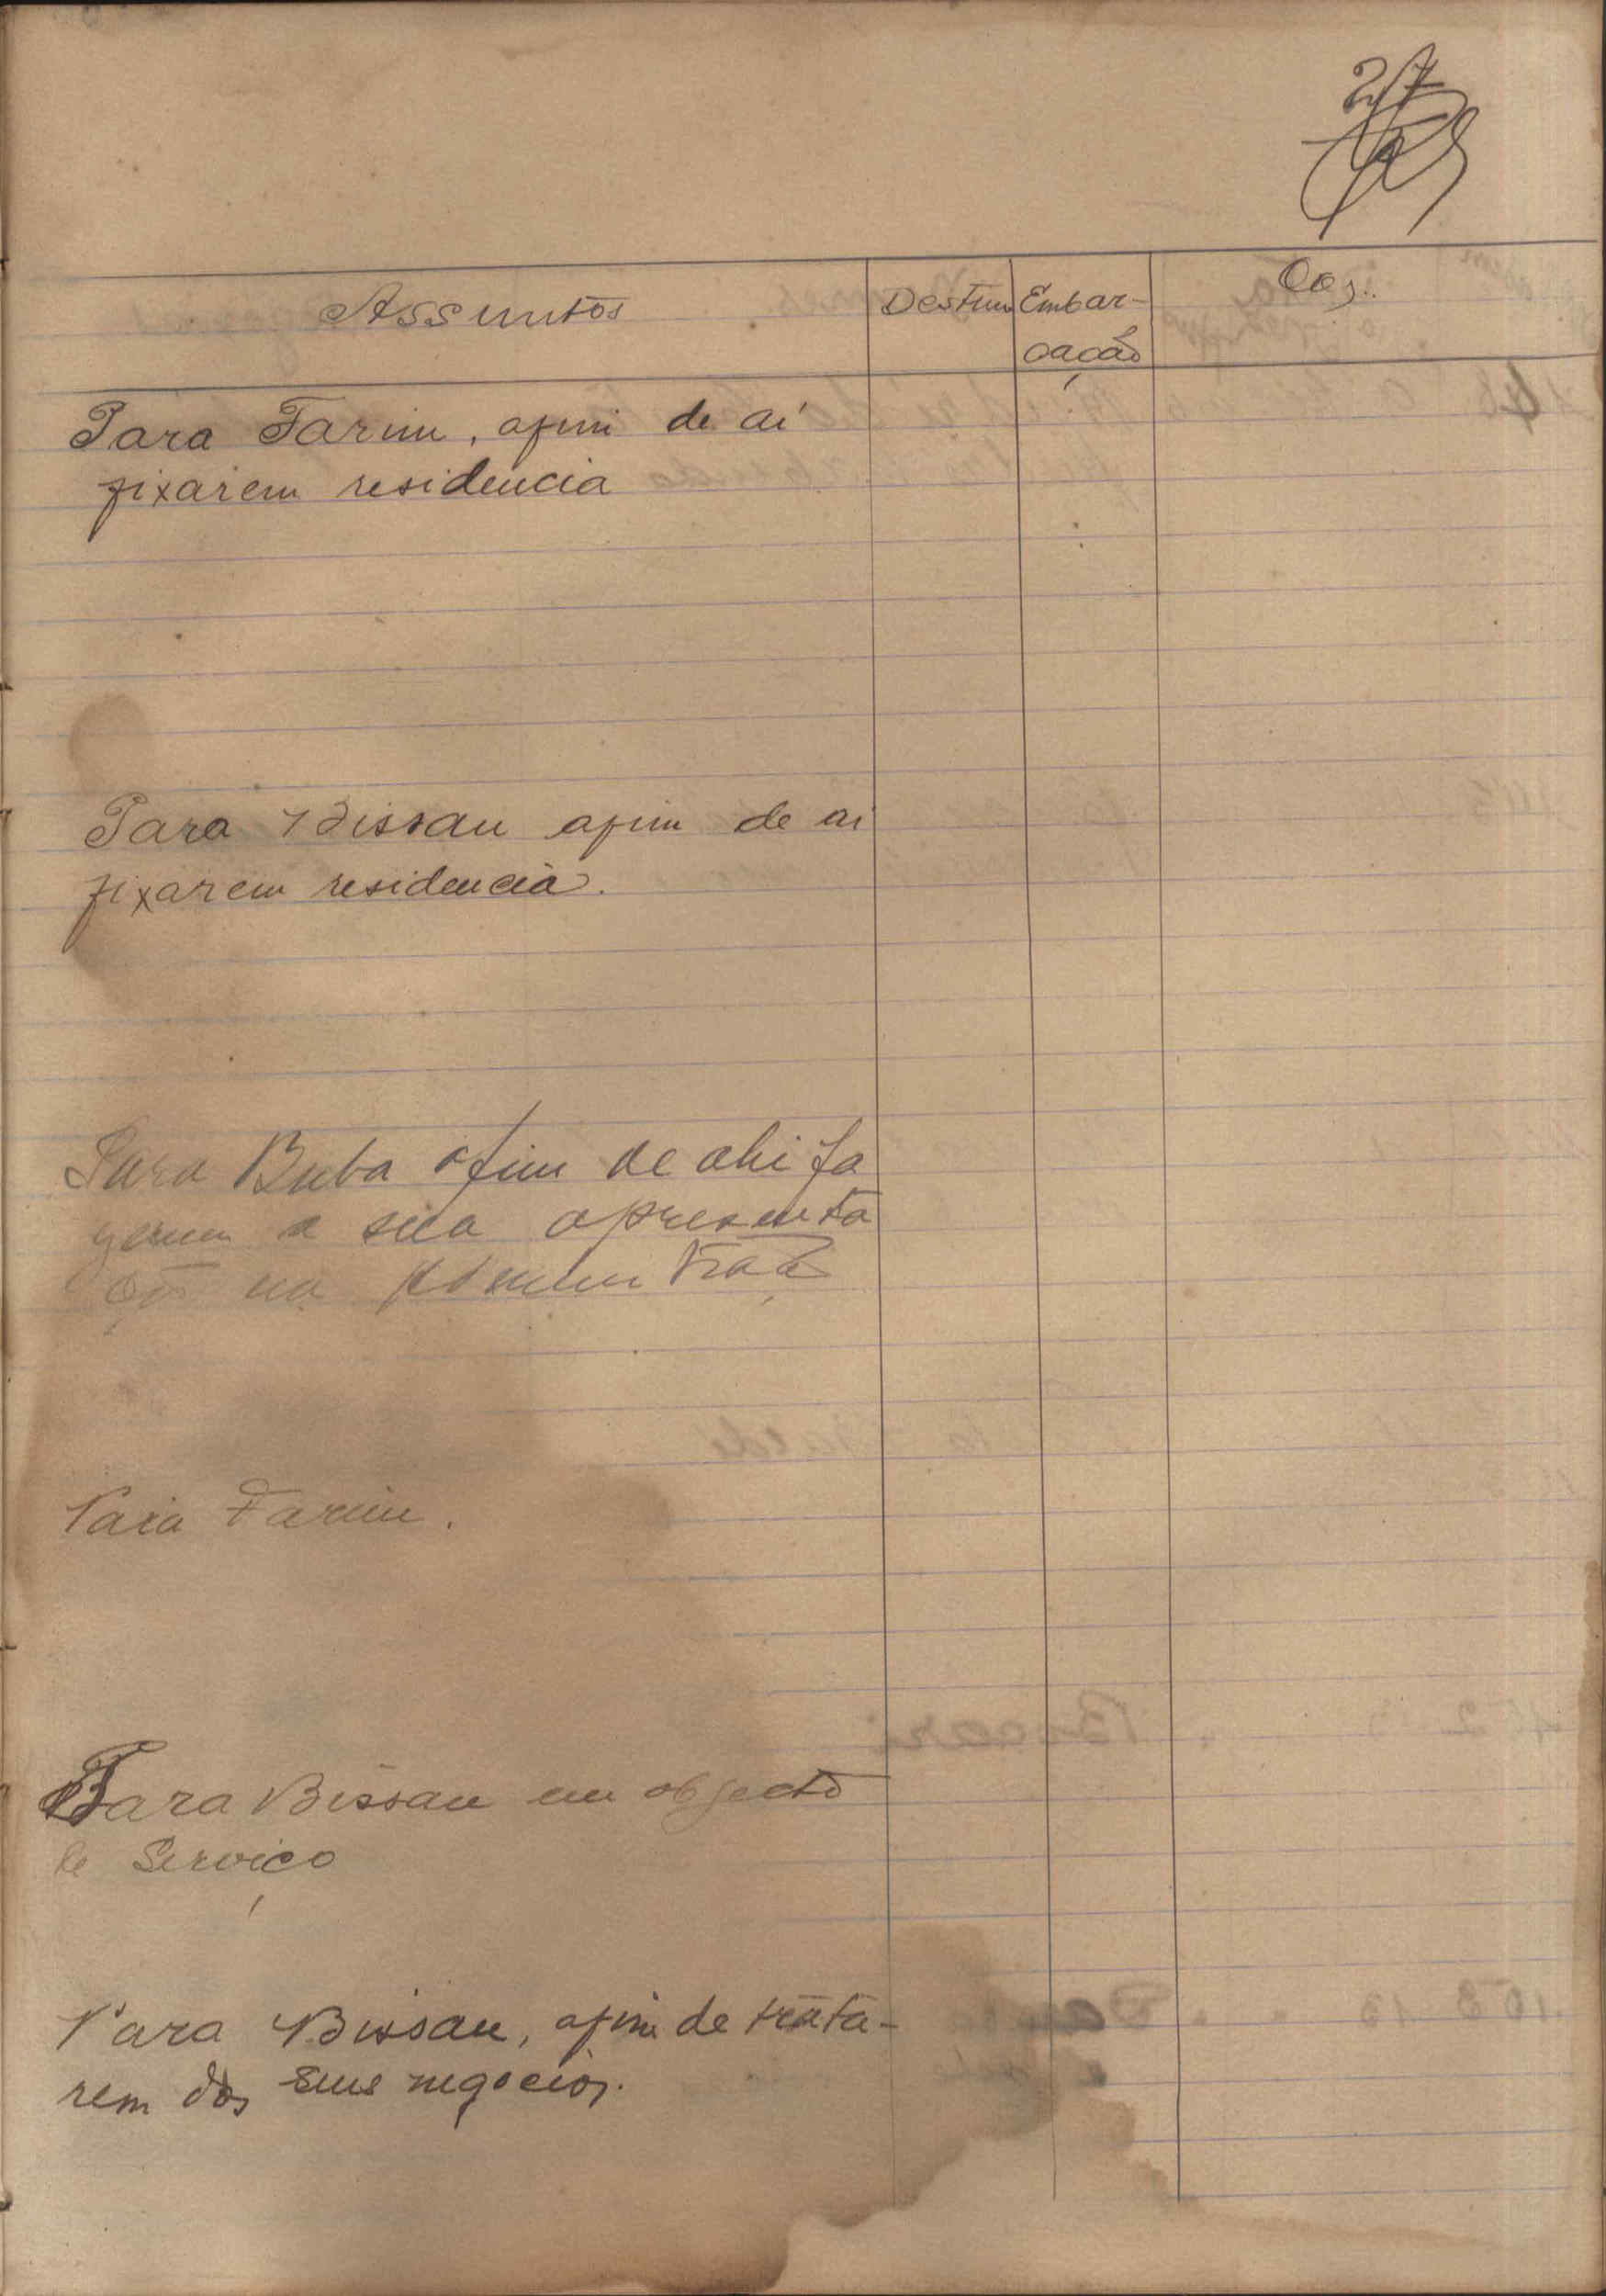 27
Assuntos Destino Embar- Obs.
cação
Para Farim, afim de aí
fixarem residencia
Para Bissau afim de ai
fixarem residencia.
Para Buba afim de ahi fa
zerem a sua apresenta
ção na
Para Farim.
Para Bissau em objecto
de Serviço
Para Bissau, afim de trata-
rem dos seus negocios.